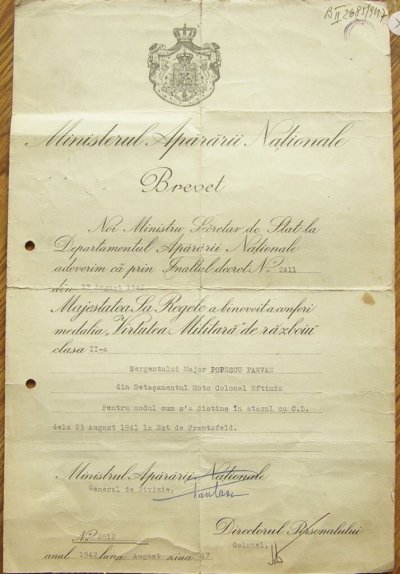 B II 268
Ministerul Apărării Naționale
Brevet
Noi Ministru Secretar de Stat la
Departamentul Apărării Naționale
adeverim că prin Înaltul decret No. 2411
din 17 August 1942
Majestatea Sa Regele a binevoit a conferi
medalia „Virtutea Militară" de războiu
clasa II-a
Sergentului Major POPESCU PARVAN
din Detașamentul Moto Colonel Eftimiu
Pentru modul cum s'a distins în atacul cu C.L.
dela 23 August 1941 la Est de Frantzfeld.
Ministrul Apărării Naționale
General de Divizie,
Directorul Personalului
Colonel,
No. 2012
anul 1942 luna August ziua 17